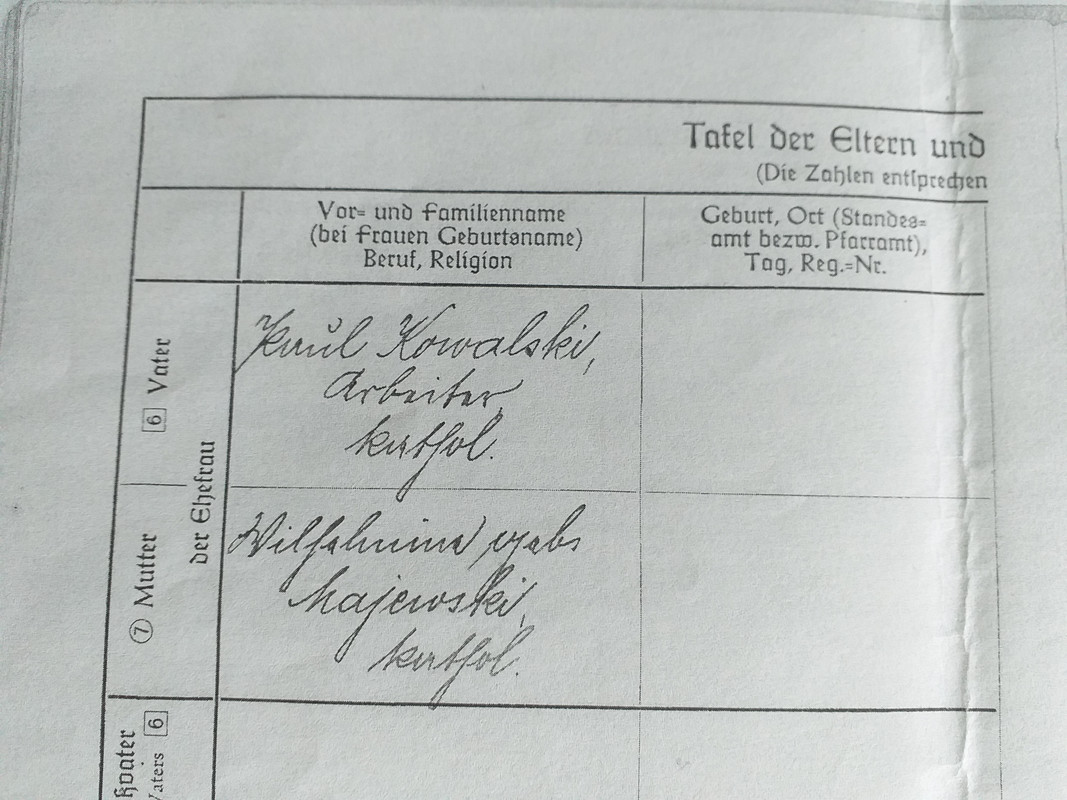 Tafel der Eltern und
(Die Zahlen entsprechen
Vor= und Familienname
(bei Frauen Geburtsname)
Beruf, Religion
Geburt, Ort (Standes=
amt bezw. Pfarramt),
Tag, Reg.=Nr.
6 Vater
der Ehefrau
Paul Kowalski,
Arbeiter,
kathol.
7 Mutter
Wilhelmine gebs
Majewski,
kathol.
6